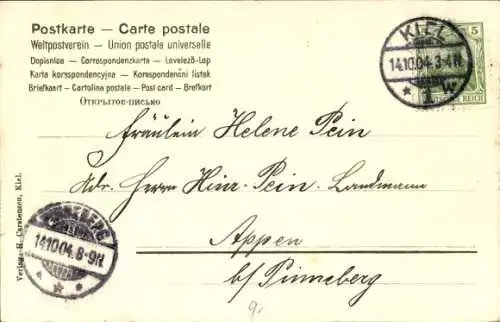 Postkarte — Carte postale
Weltpostverein — Union postale universelle
Dopisnice — Correspondenzkarte — Levelező-Lap
Karta korespondencyjna — Korespondenční lístek
Briefkaart — Cartolina postale — Post card — Brefkort
Открытое-письмо
5
KIEL
14.10.04.3-4N
* 1 w
REICH
Fräulein Helene Pein
Adr. Herrn Hinr. Pein. Landmann
Appen
b/ Pinneberg
Verlag: H. Carstensen, Kiel.
PINNEBERG
14.10.04.8-9N
* * *
9.